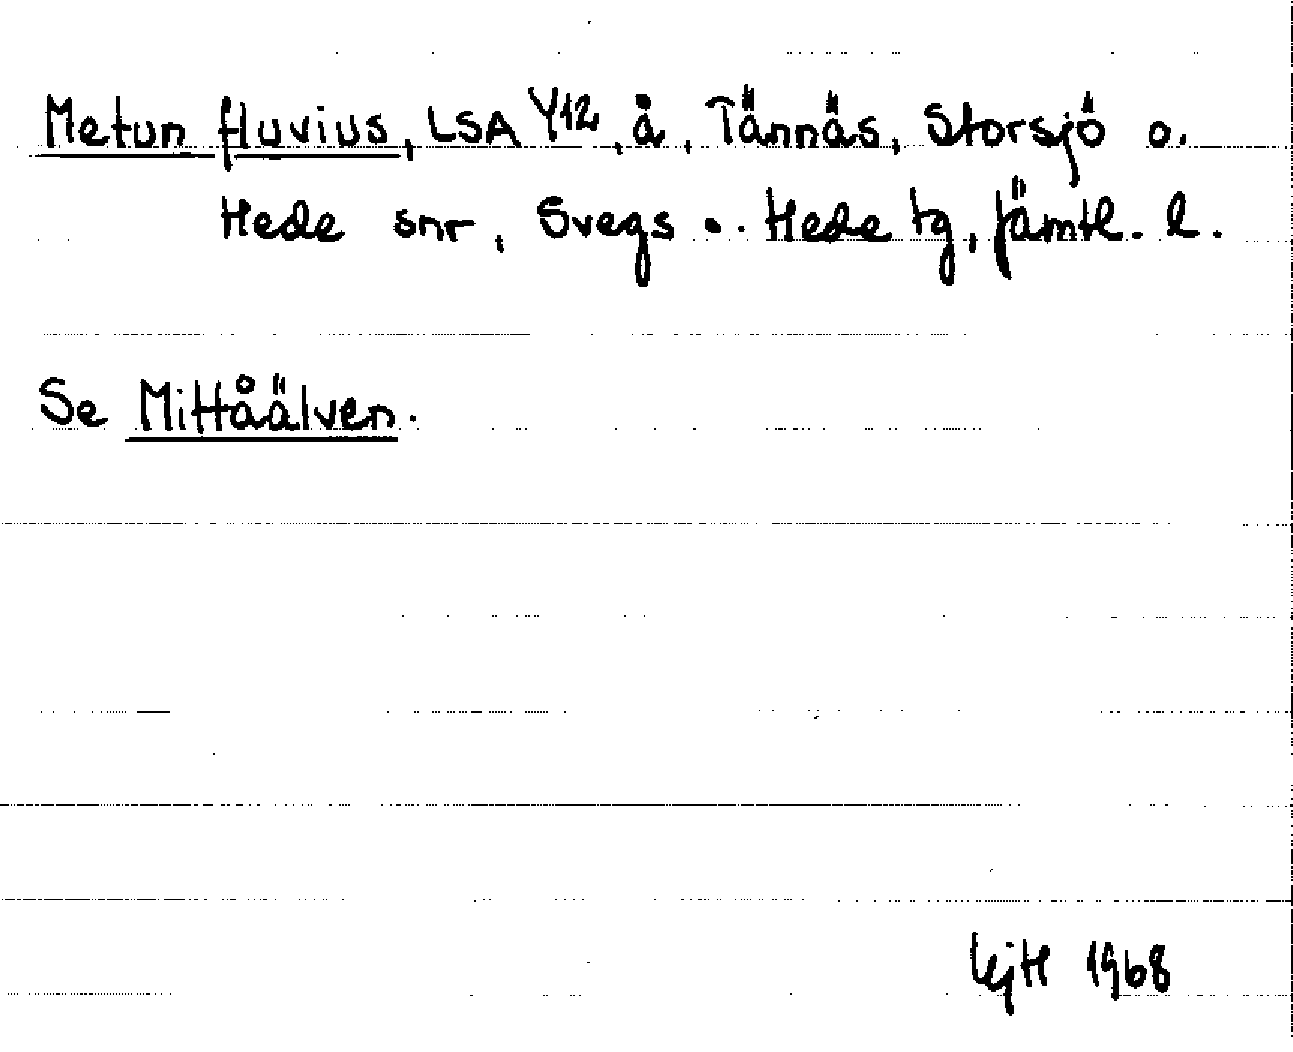 Metun fluvius, LSA Y12, å, Tännäs, Storsjö o.
Hede snr, Svegs o. Hede tg, Jämtl. l.
Se Mittåälven.
1968